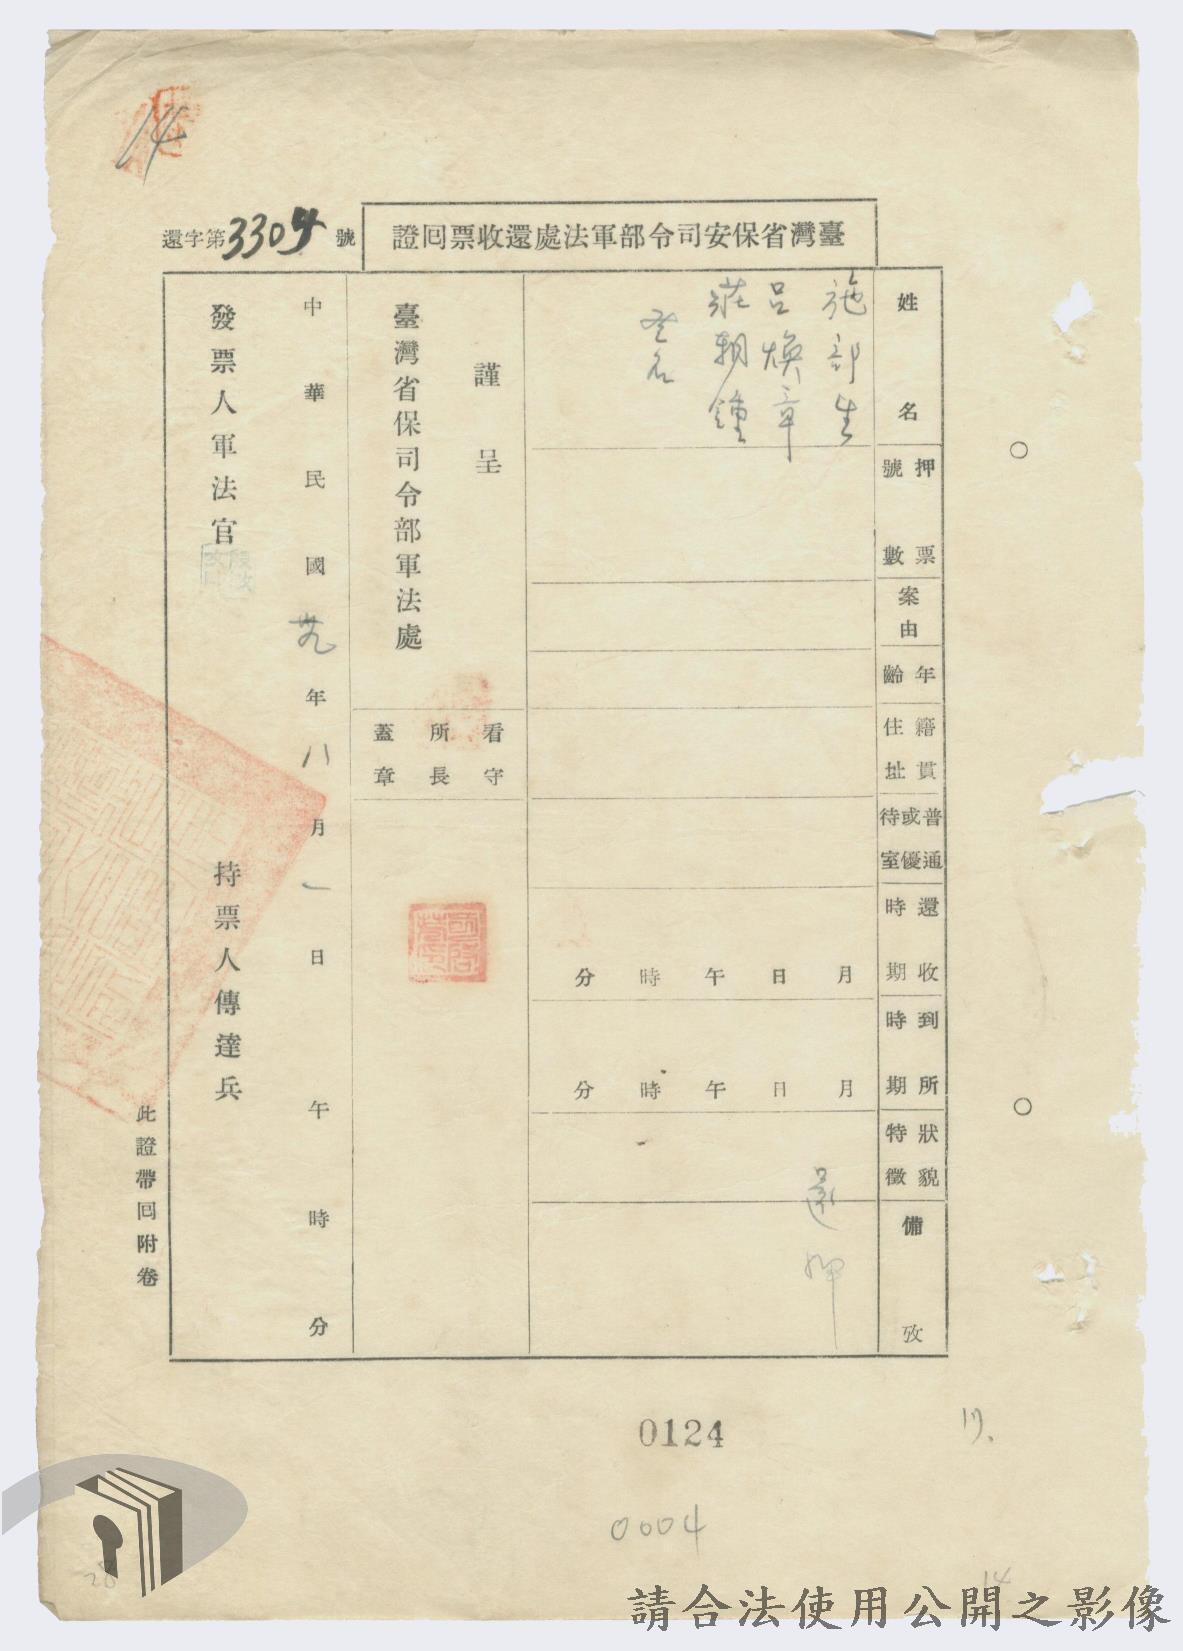 14
臺灣省保安司令部軍法處還收票囘證
還字第3304號
姓名
施部生
呂煥章
莊朝鍾
叁名
押票號數
案由
年齡
籍貫住址
普通或優待室
還收時期
月日午時分
到所時期
月日午時分
狀貌特徵
備攷
還押
謹呈
臺灣省保司令部軍法處
看守所長蓋章
中華民國卅九年八月一日午時分
發票人軍法官
持票人傳達兵
此證帶囘附卷
0124
17.
0004
28
14
請合法使用公開之影像